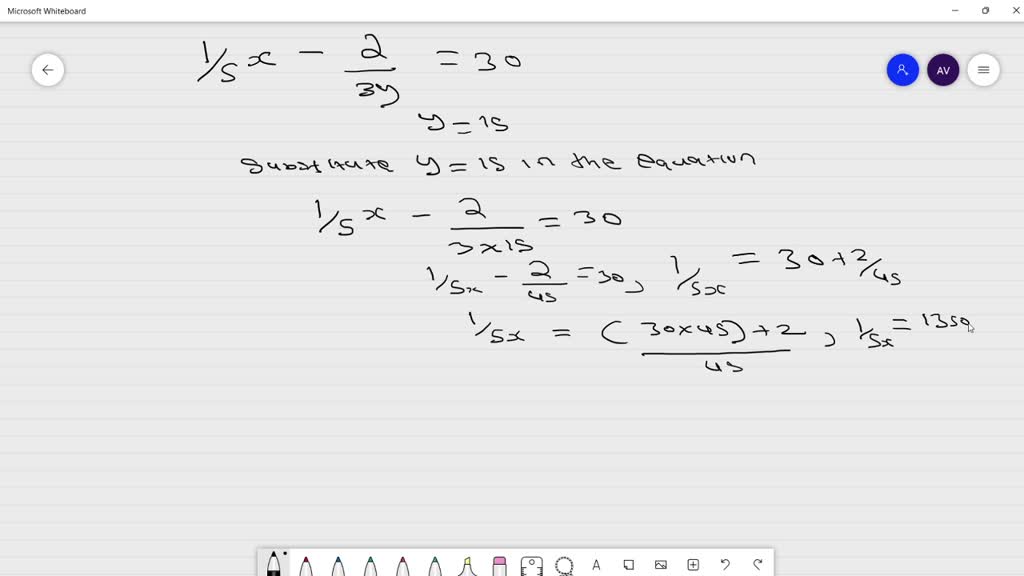 Microsoft Whiteboard
1/5 x - 2/3y = 30
AV
y = 15
substitute y = 15 in the equation
1/5 x - 2/3x15 = 30
1/5x - 2/45 = 30, 1/5x = 30 + 2/45
1/5x = (30x45)+2/45, 1/5x = 1350
A